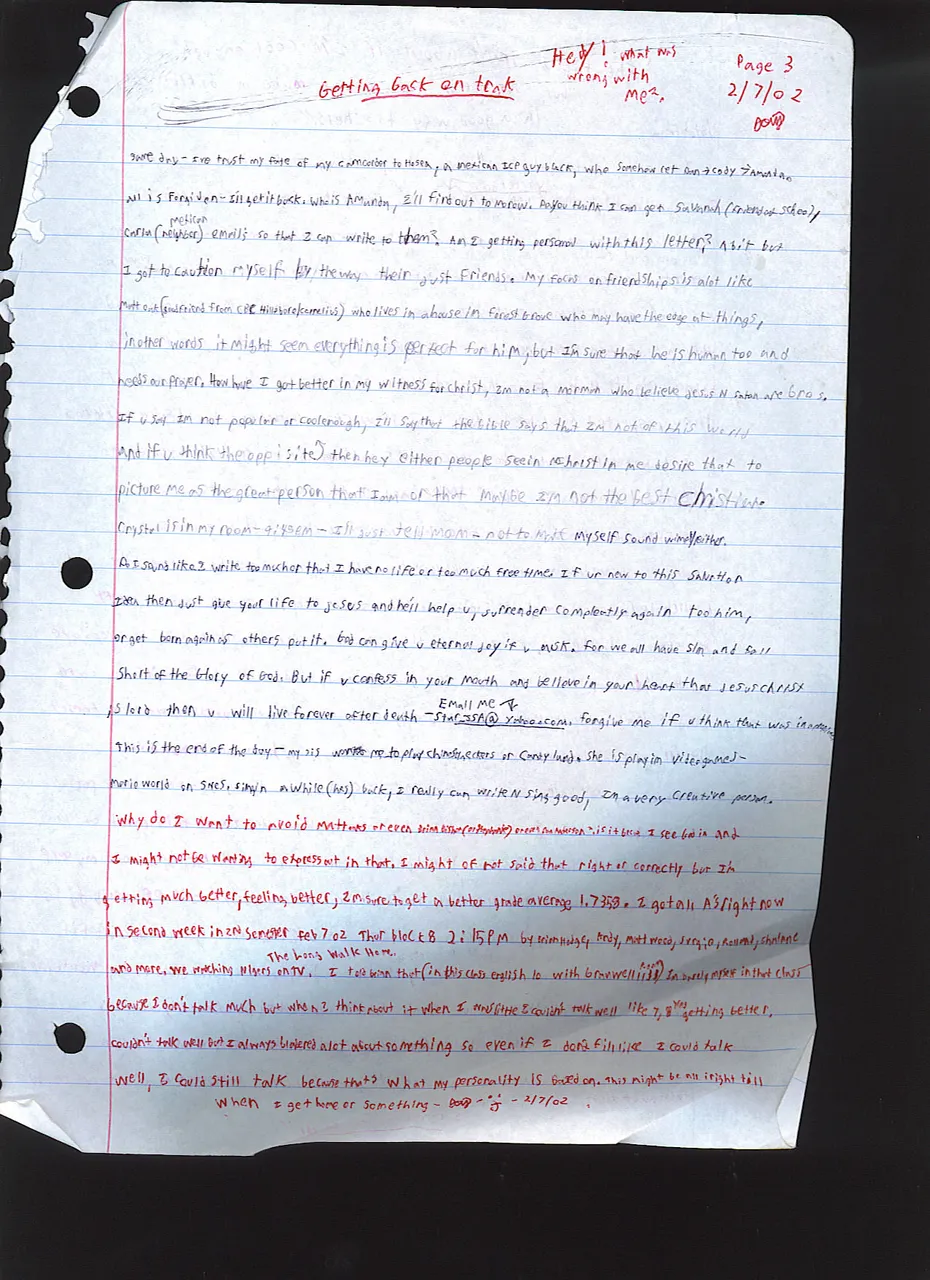 Hey! what was
wrong with
me?
Page 3
2/7/02
Getting back on trak
same day - I've trust my fate of my camcorder to Hosea, a mexican ICP guy black, who somehow let Dan → Cody → Amanda.
All is Forgiven - I'll get it back. who is Amanda, I'll find out tomorow. Do you think I can get Savanah (friend at school),
mexican
Carla (neighbor) emails so that I can write to them? Am I getting personal with this letter? A bit but
I got to caution myself by the way their just friends. My focus on friendships is alot like
Matt (good friend from Hillsboro/cornelius) who lives in a house in Forest Grove who may have the edge at things,
in other words it might seem everything is perfect for him, but I'm sure that he is human too and
needs our prayer. How have I got better in my witness for christ, Im not a morman who believe jesus N satan are bros.
If u say Im not popular or cool enough, I'll say that the bible says that Im not of this world
and if u think the oppisite) then hey either people seein christ in me desire that to
picture me as the great person that I am or that maybe I'm not the best christian.
Crystal is in my room - - I'll just tell mom - not to make myself sound either.
Do I sound like I write too much or that I have no life or too much free time. If ur new to this Salvation
Idea then just give your life to jesus and he'll help u, surrender completly again too him,
or get born again as others put it. God can give u eternal joy if u ask. for we all have sin and fall
short of the Glory of God. But if u confess in your mouth and believe in your heart that Jesus christ
EMAIL ME
is lord then u will live forever after death - @yahoo.com, forgive me if u think that was
This is the end of the day - my sis wants me to play chinese checkers or Candy land. She is playin video games -
mario world on SNES. singin a while (has) back, I really can write N sing good, Im a very creative person.
Why do I want to avoid or even is it I see God in and
I might not be wanting to express out in that. I might of not said that right or correctly but I'm
getting much better, feeling better, Im sure to get a better grade average 1.7358. I got all A's right now
in second week in 2nd semester feb 7 02 Thur block 8 2:15 PM by Andy, Matt wood, Sergio,
The Long Walk Home.
and more. we watching on TV. I told brian that (in this class english 10 with branwell) Im barely myself in that class
because I don't talk much but when I think about it when I was little I couldn't talk well like 7, 8 yrs getting better.
couldn't talk well but I always blabered alot about something so even if I don't fill like I could talk
well, I could still talk because thats what my personality is based on. This might be all iright till
when I get home or something - - 2/7/02